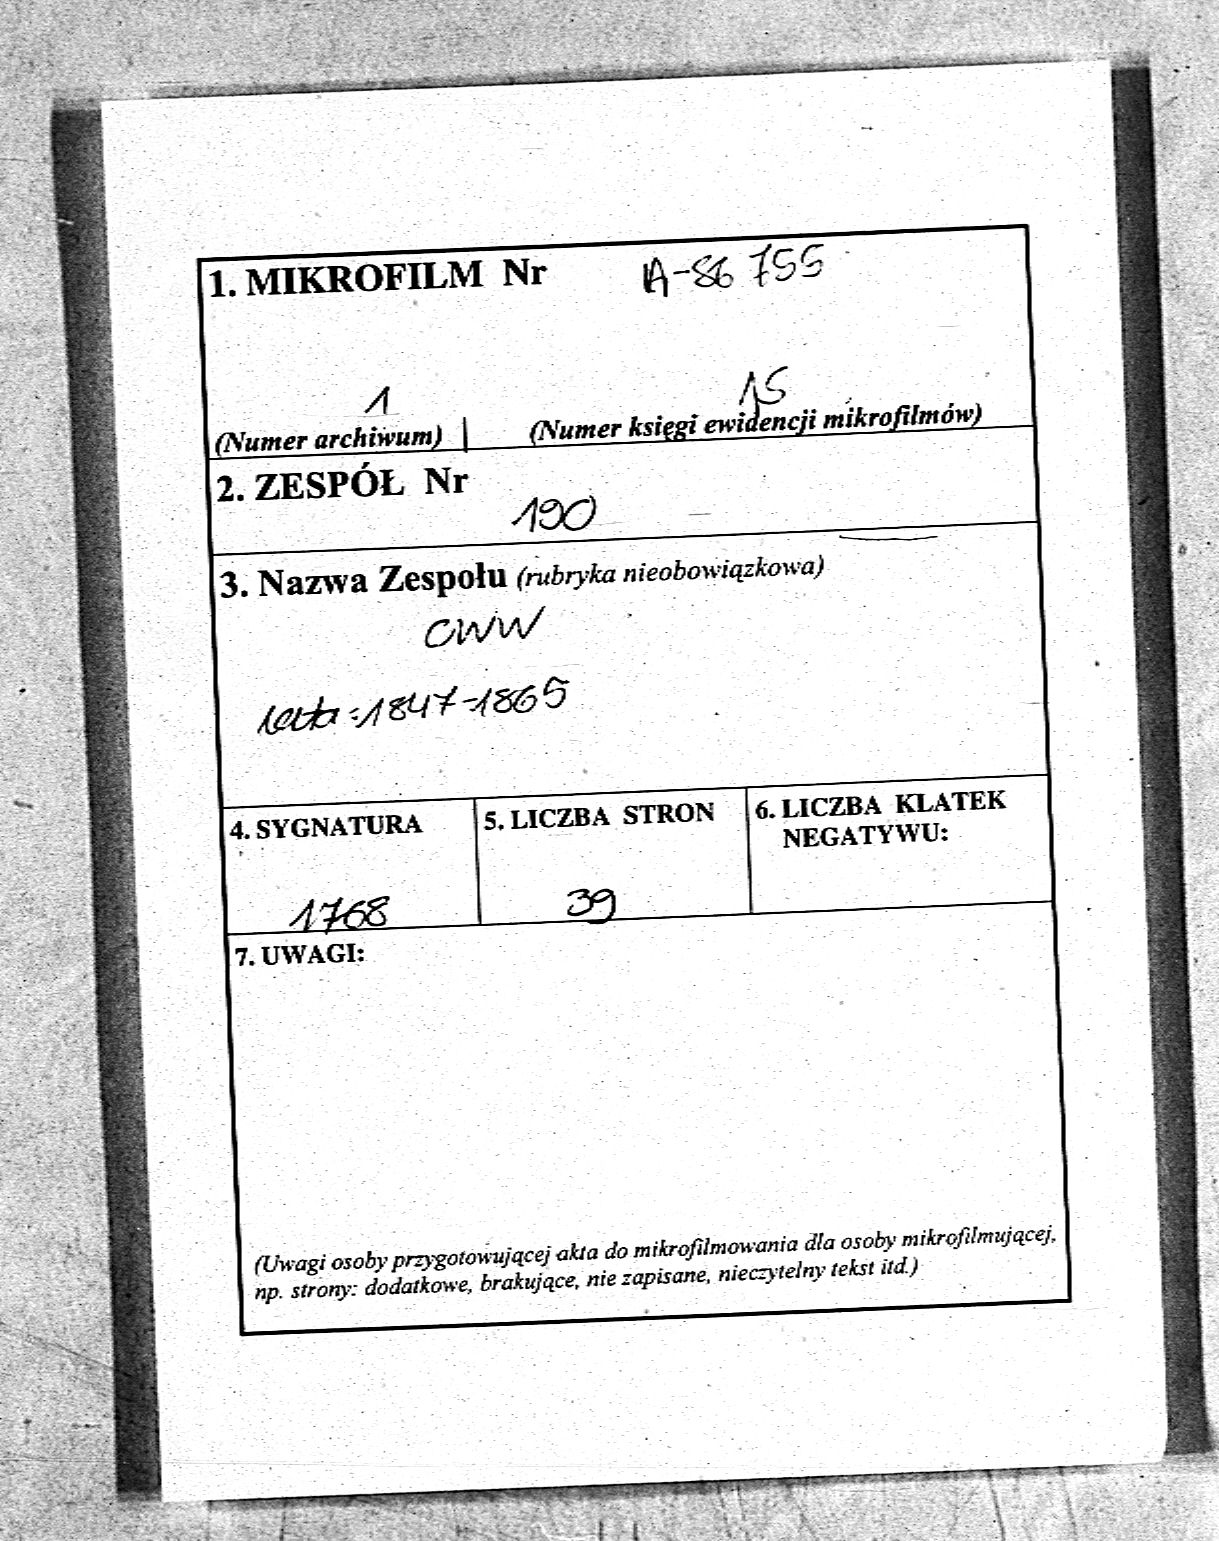 1. MIKROFILM Nr A-86 755
1 15
(Numer archiwum) | (Numer księgi ewidencji mikrofilmów)
2. ZESPÓŁ Nr
190
3. Nazwa Zespołu (rubryka nieobowiązkowa)
CWW
lata: 1847-1865
4. SYGNATURA
1768
5. LICZBA STRON
39
6. LICZBA KLATEK
NEGATYWU:
7. UWAGI:
(Uwagi osoby przygotowującej akta do mikrofilmowania dla osoby mikrofilmującej,
np. strony: dodatkowe, brakujące, nie zapisane, nieczytelny tekst itd.)